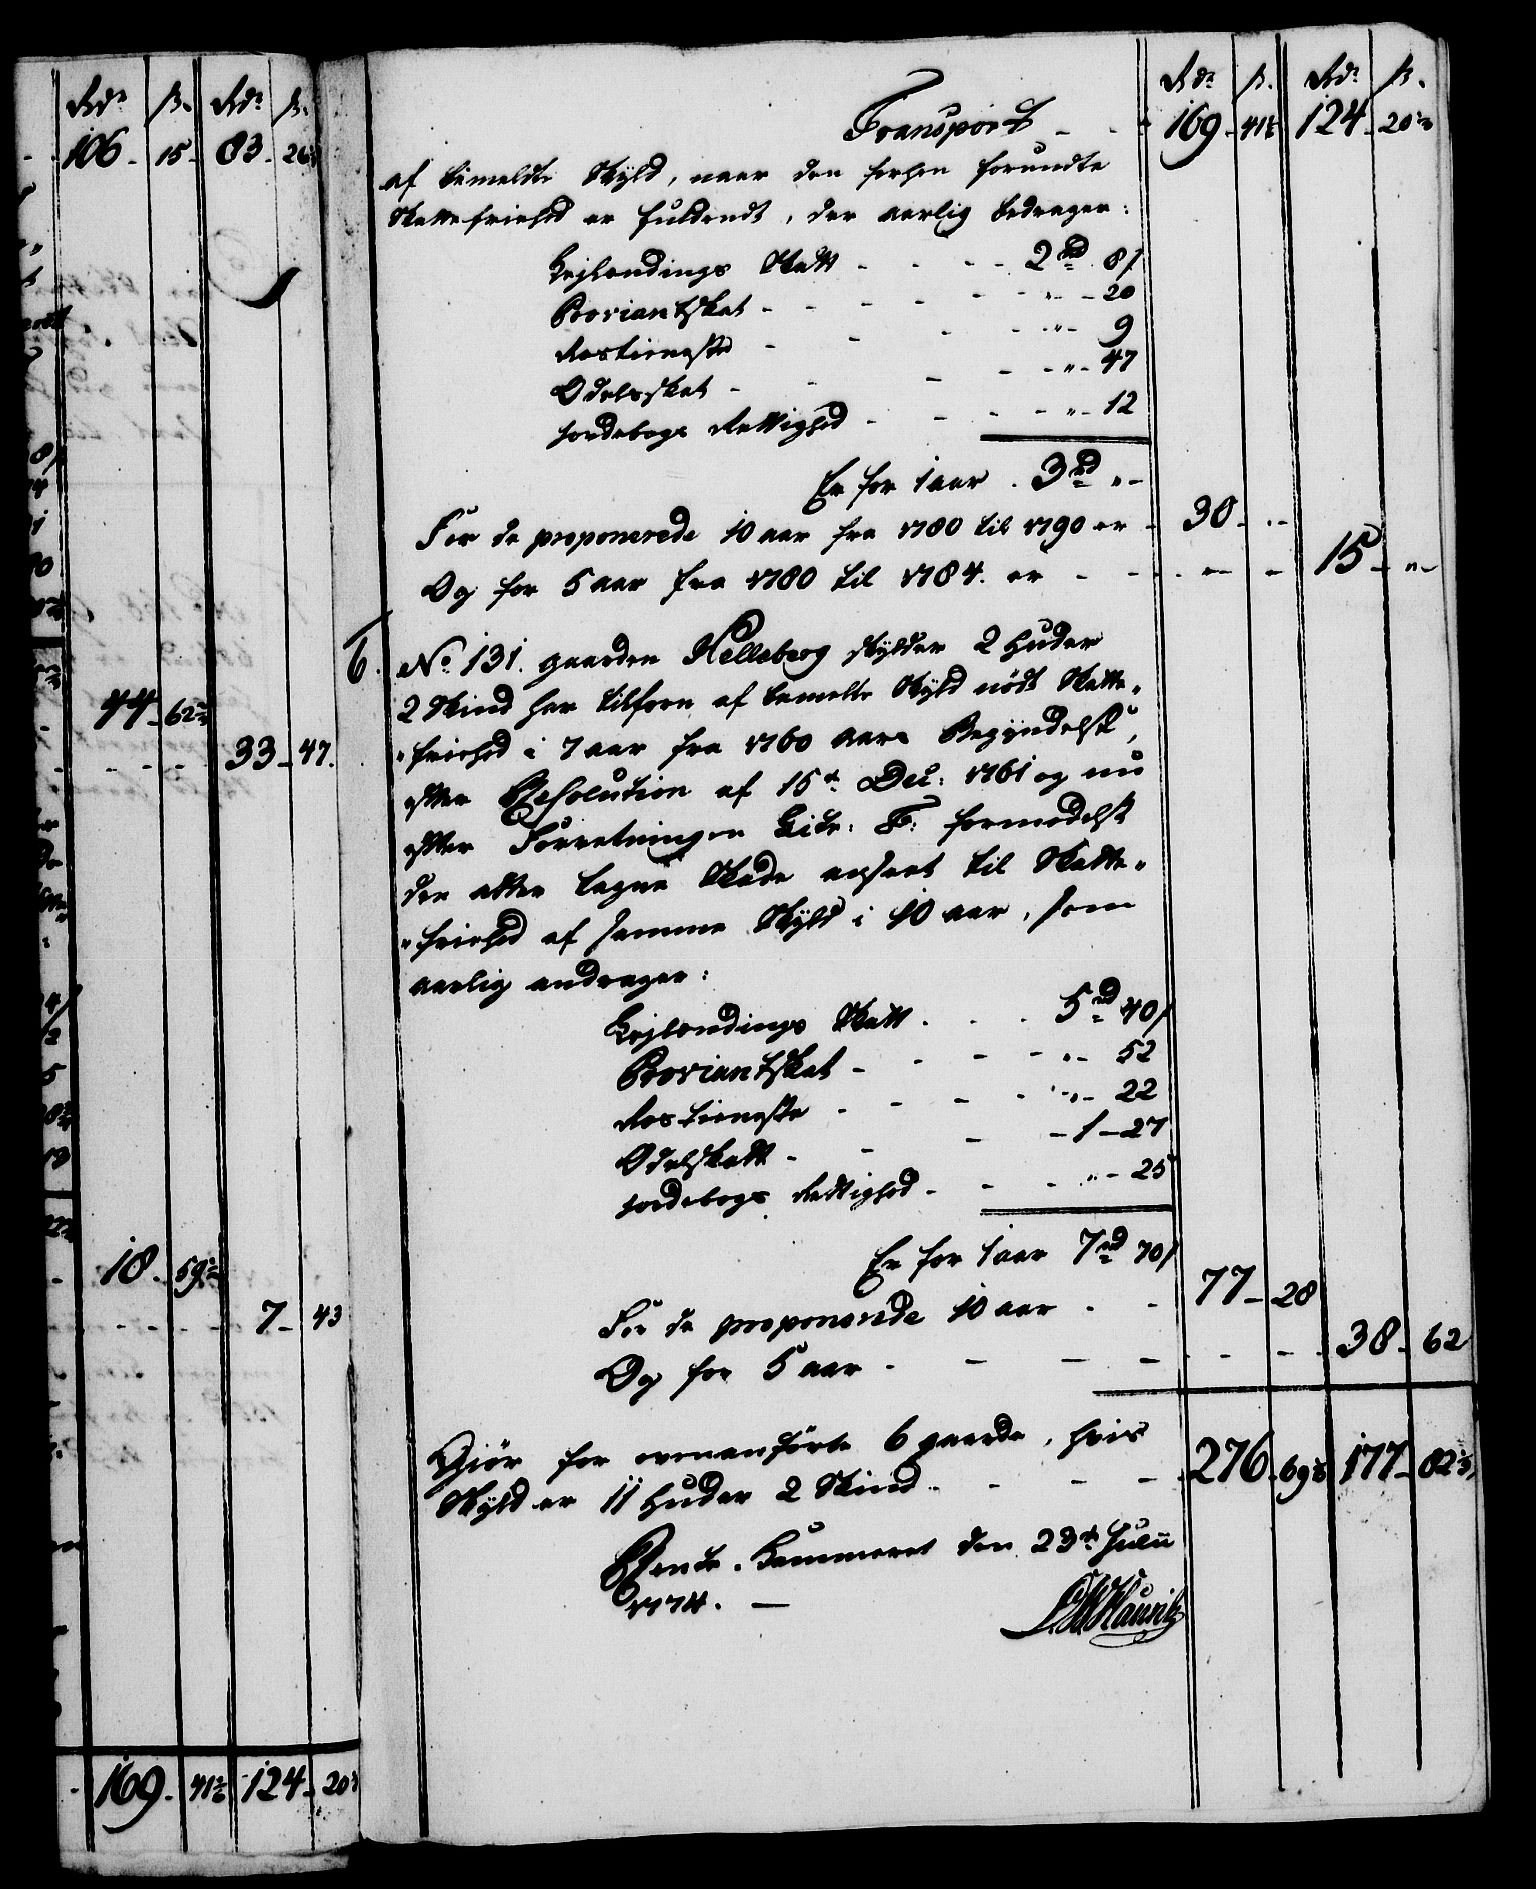 Rdr ß. Rdr ß.
106 15 83 26
44 62
33 47.
18 59
7 43
169 41 124 20
Rdr ß. Rdr ß.
Transport 169 41 124 20
af bemeldte Skyld, naar den forhen forundte
Skattefriehed er fuldendt, der aarlig bedrager:
Leylendings Skatt 2 rd 8 ß
Proviantskat " 20
Rostieneste " 9
Odelsskat " 47
Jordebogs Rettighed " 12
Er for 1 aar 3 rd "
For de proponerede 10 aar fra 1780 til 1790 er 30 "
Og for 5 aar fra 1780 til 1784. er 15 "
6. No 131. gaarden Helleberg skylder 2 Huder
2 Skind har tilforn af bemelte Skyld nødt Skatte-
friehed i 7 aar fra 1760 Aars Begyndelse,
efter Resolution af 15t Dec: 1761 og nu
efter Forretningen Litr: F: formedelst
den atter tagne Skade ansat til Skatte-
friehed af samme Skyld i 10 aar, som
aarlig andrager:
Leylendings Skatt 5 rd 40 ß
Proviantskat " 52
Rostieneste " 22
Odelskatt 1 27
Jordebogs Rettighed " 25
Er for 1 aar 7 rd 70 ß
For de proponerede 10 aar 77 28
Og for 5 aar 38 62
Giør for ovenanførte 6 gaarde, hvis
Skyld er 11 Huder 2 Skind 276 69 177 82
Rente-Kammeret den 23t Julii
1774.